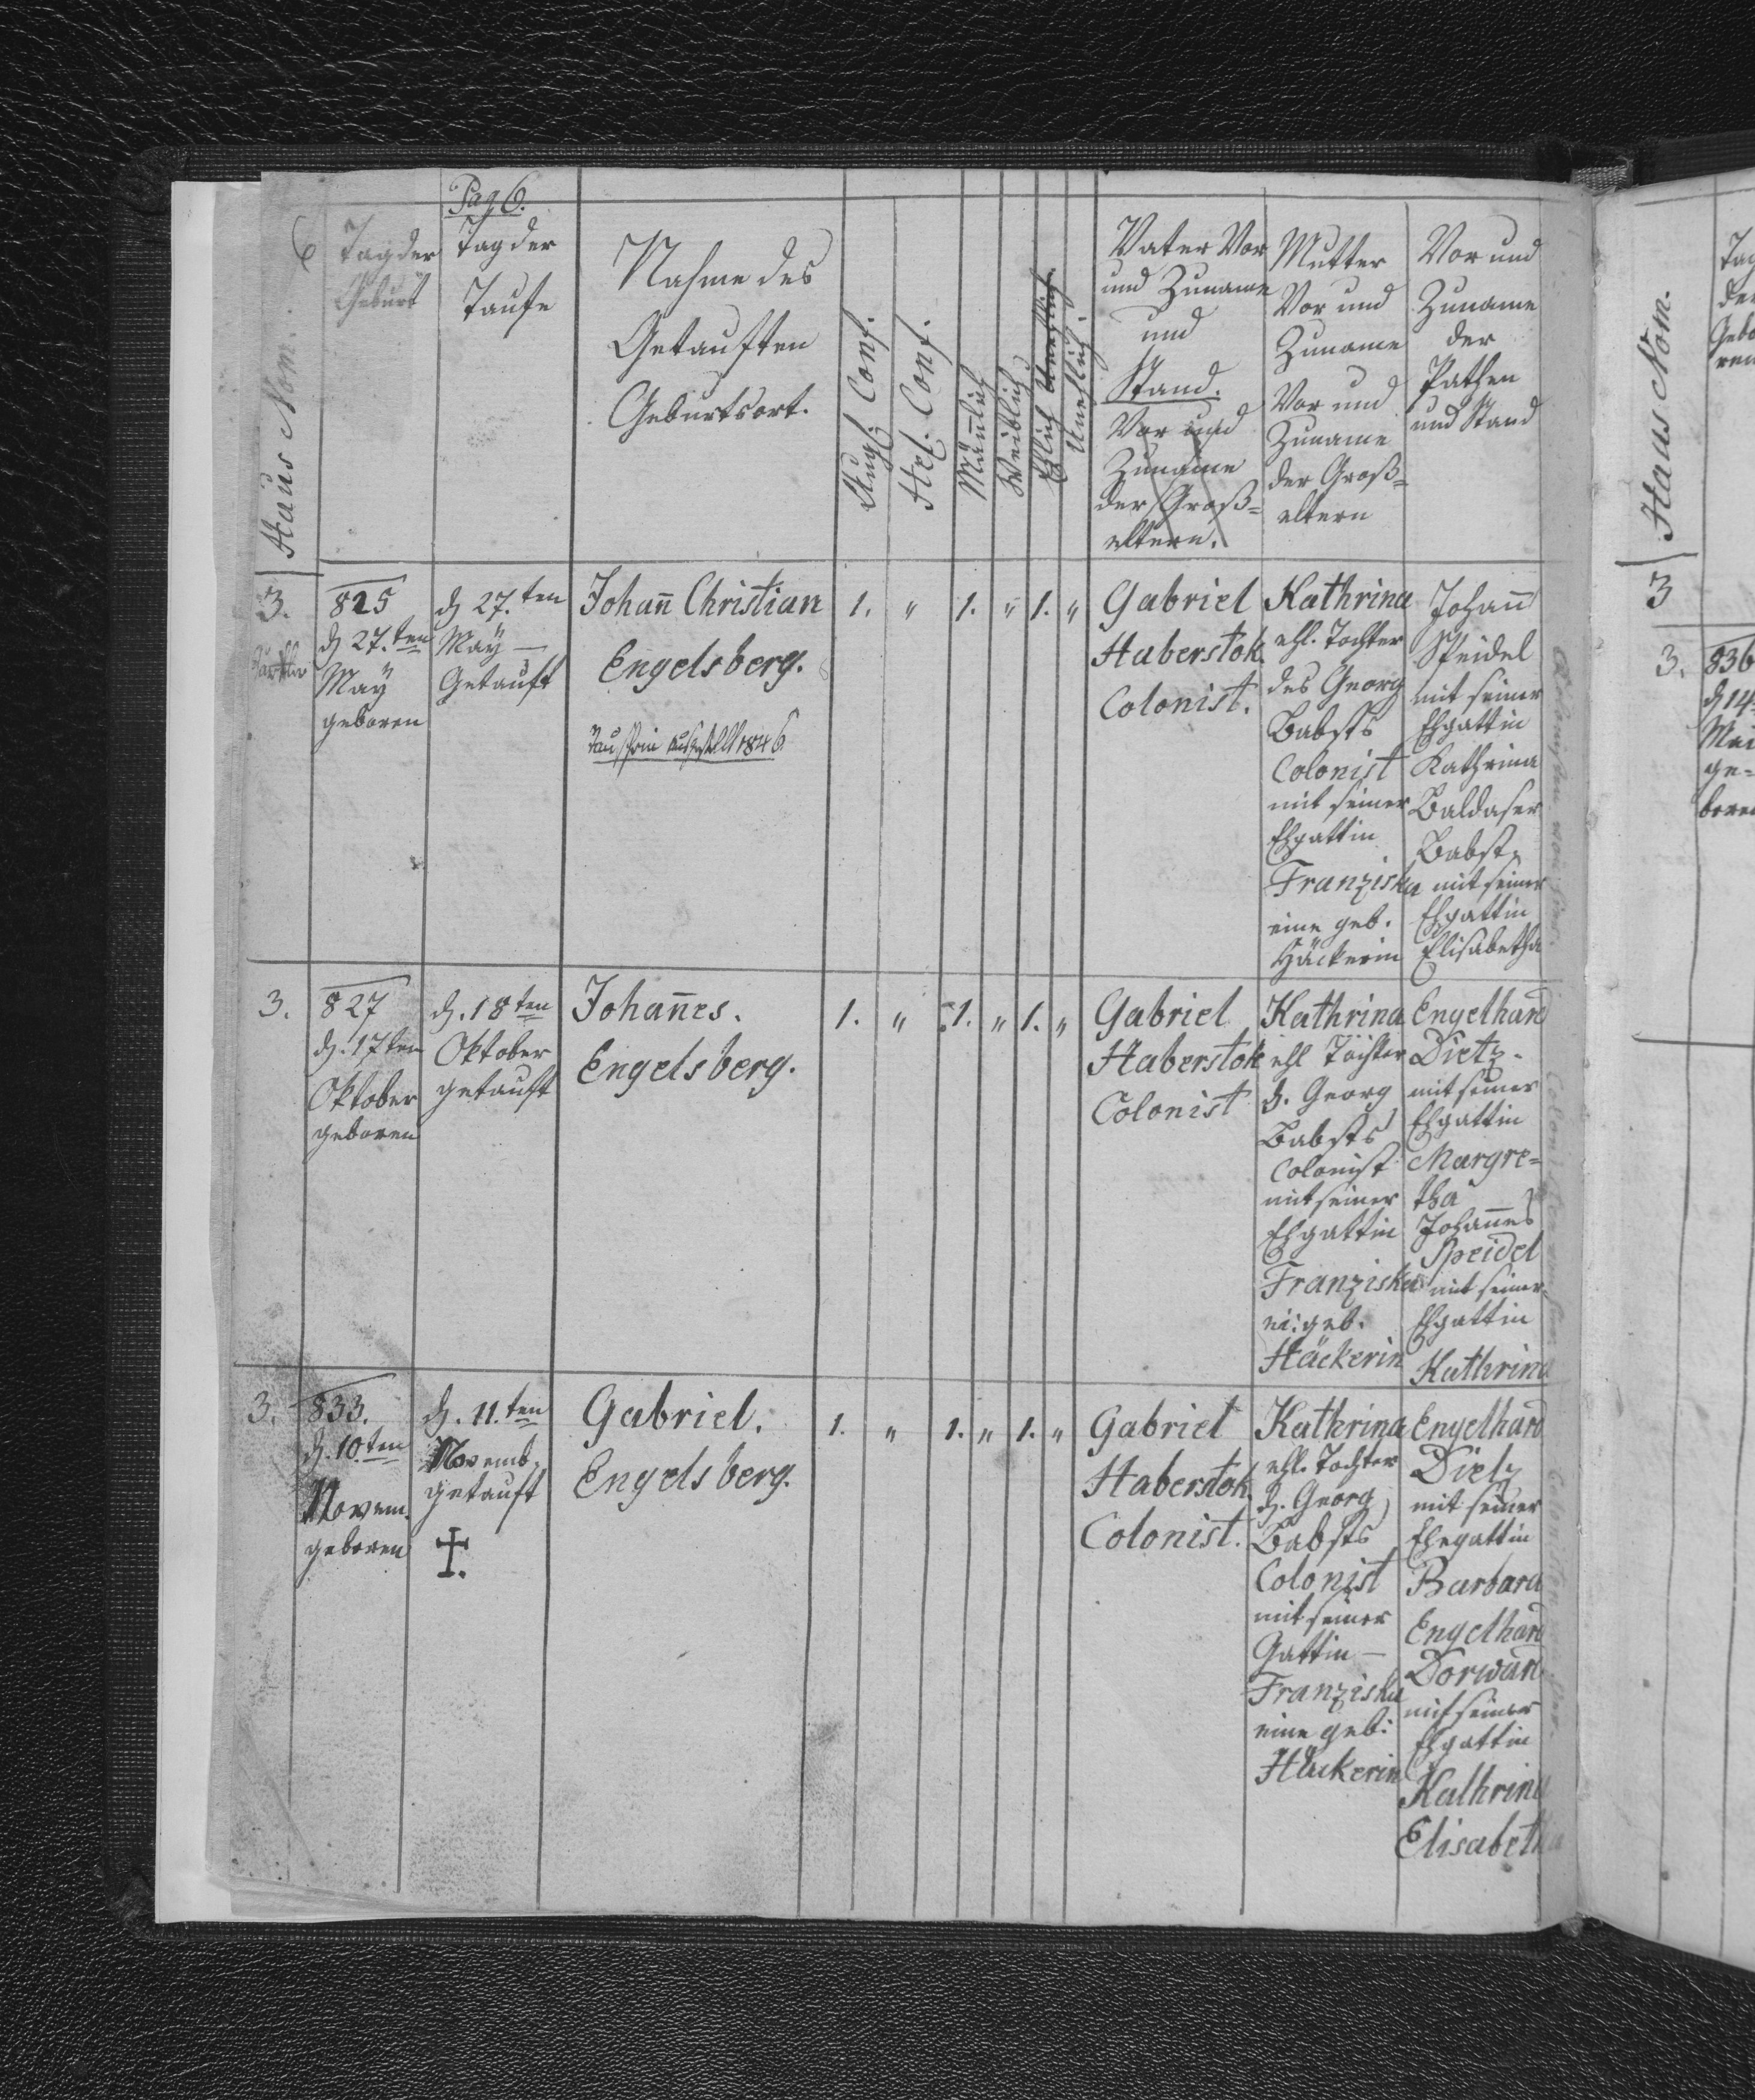 Pag 6.
6
Haus Nom.
Tag der
Geburt
Tag der
Taufe
Nahme des
Getauften
Geburtsort.
Augs. Conf.
Hel. Conf.
Mañlich
Weiblich
Ehlich
Unehlich
Unehlich.
Vater Vor
und Zuname
und
Stand.
Vor und
Zuname
der Groß=
eltern.
Mutter
Vor und
Zuname
Vor und
Zuname
der Groß=
eltern
Vor und
Zuname
der
Pathen
und Stand
3.
825
d 27.ten
Maÿ
geboren
d 27.ten
Maÿ —
Getauft
Johañ Christian
Engelsberg.
Taufschein ausgestellt 1846
1. " 1. " 1. "
Gabriel
Haberstok
Colonist.
Kathrina
ehl. Tochter
des Georg
Babsts
Colonist
mit seiner
Ehgattin
Franziska
eine geb.
Häckerin
Johañ
Speidel
mit seiner
Ehgattin
Kathrina
Baldaser
Babst
mit seiner
Ehgattin
Elisabetha
3.
827
d. 17ten
Oktober
geboren
d. 18ten
Oktober
getauft
Johañes.
Engelsberg.
1. " 1. " 1. "
Gabriel
Haberstok
Colonist
Kathrina
ehl Tochter
d. Georg
Babsts
Colonist
mit seiner
Ehgattin
Franziska
ei: geb.
Häckerin
Engelhard
Dietz.
mit seiner
Ehgattin
Margre=
tha
Johañes
Speidel
mit seiner
Ehgattin
Kathrina
3.
833.
d. 10.ten
Novem.
geboren
d. 11.ten
Novemb.
getauft
Gabriel.
Engelsberg.
1. " 1. " 1. "
Gabriel
Haberstok.
Colonist.
Kathrina
ehl. Tochter
d. Georg
Babsts
Colonist
mit seiner
Gattin —
Franziska
eine geb:
Häckerin
Engelhard
Dietz
mit seiner
Ehegattin
Barbara
Engelhard
Dorwart
mit seiner
Ehgattin
Kathrina
Elisabetha
Haus Nom.
3
3.
836
d 14
Mai
ge=
boren